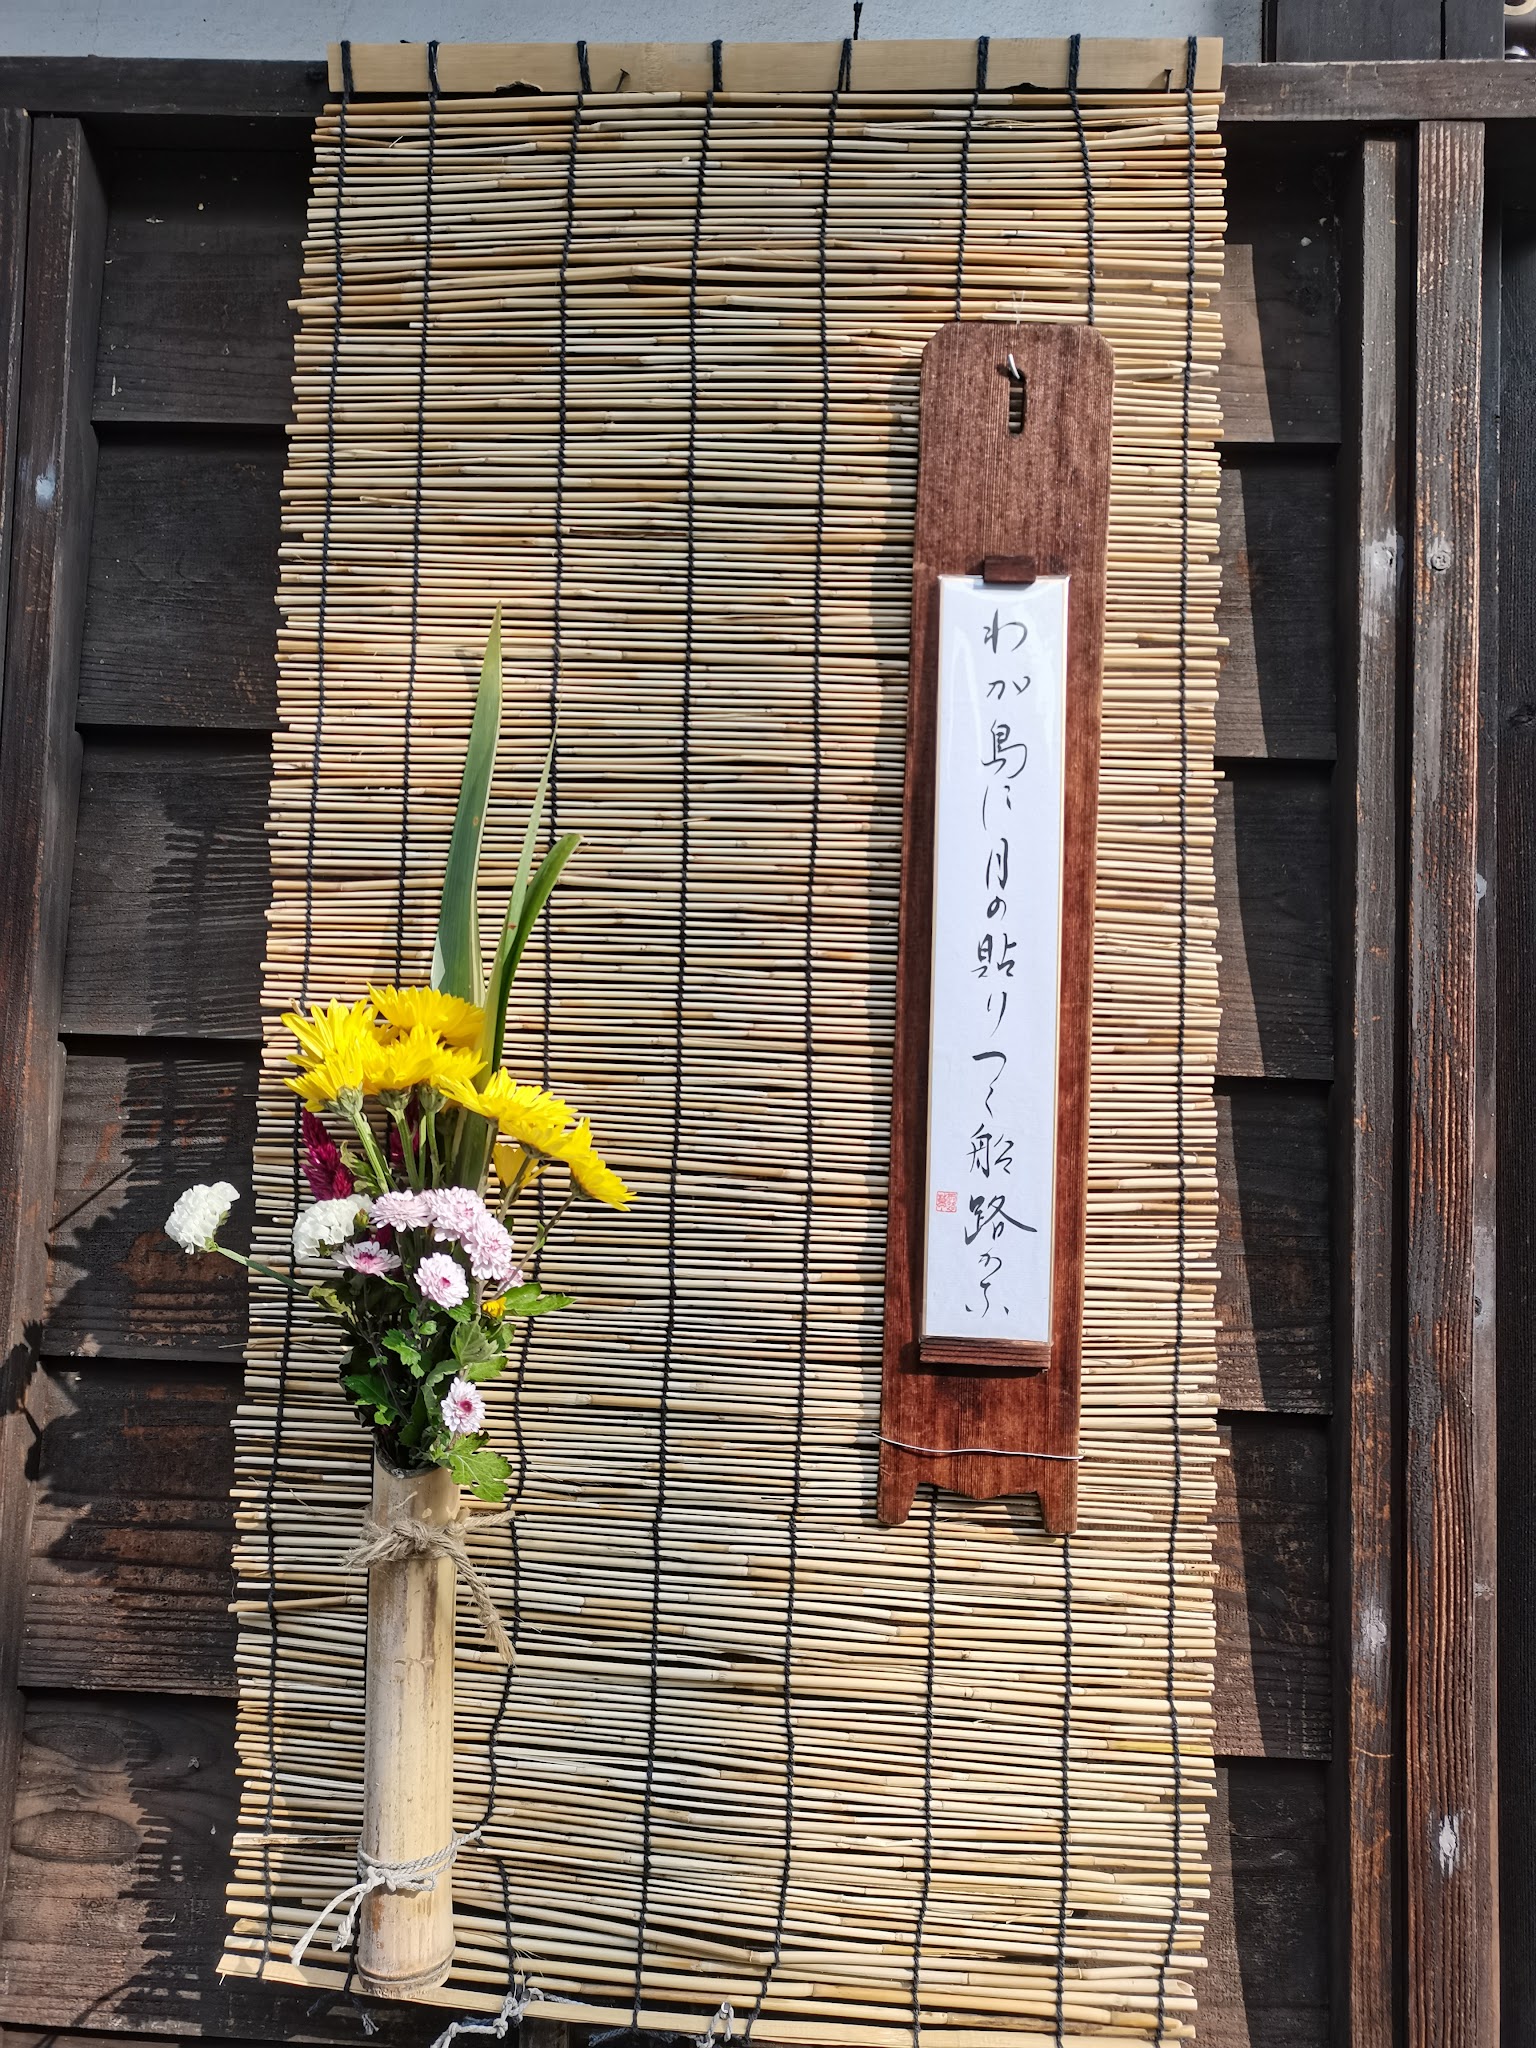 わが島に月の貼りつく船路かな